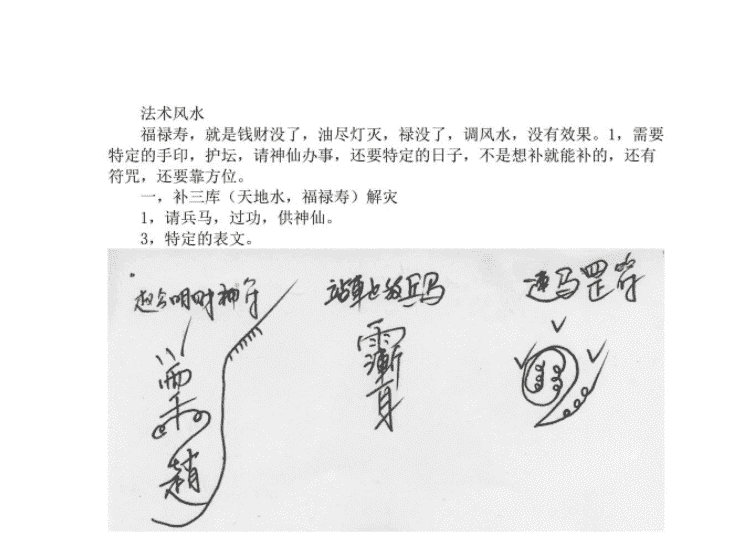 法术风水
福禄寿，就是钱财没了，油尽灯灭，禄没了，调风水，没有效果。1，需要
特定的手印，护坛，请神仙办事，还要特定的日子，不是想补就能补的，还有
符咒，还要靠方位。
一，补三库（天地水，福禄寿）解灾
1，请兵马，过功，供神仙。
3，特定的表文。
赵公明财神符
兵马
马罡符